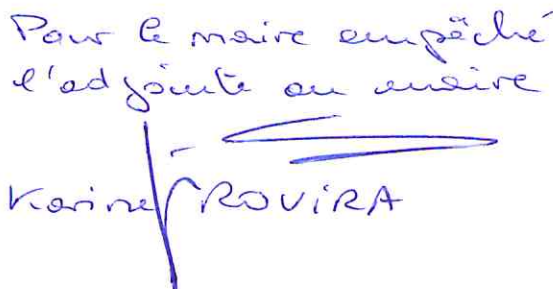 Pour le maire empêché
l'adjointe au maire
Karine ROVIRA